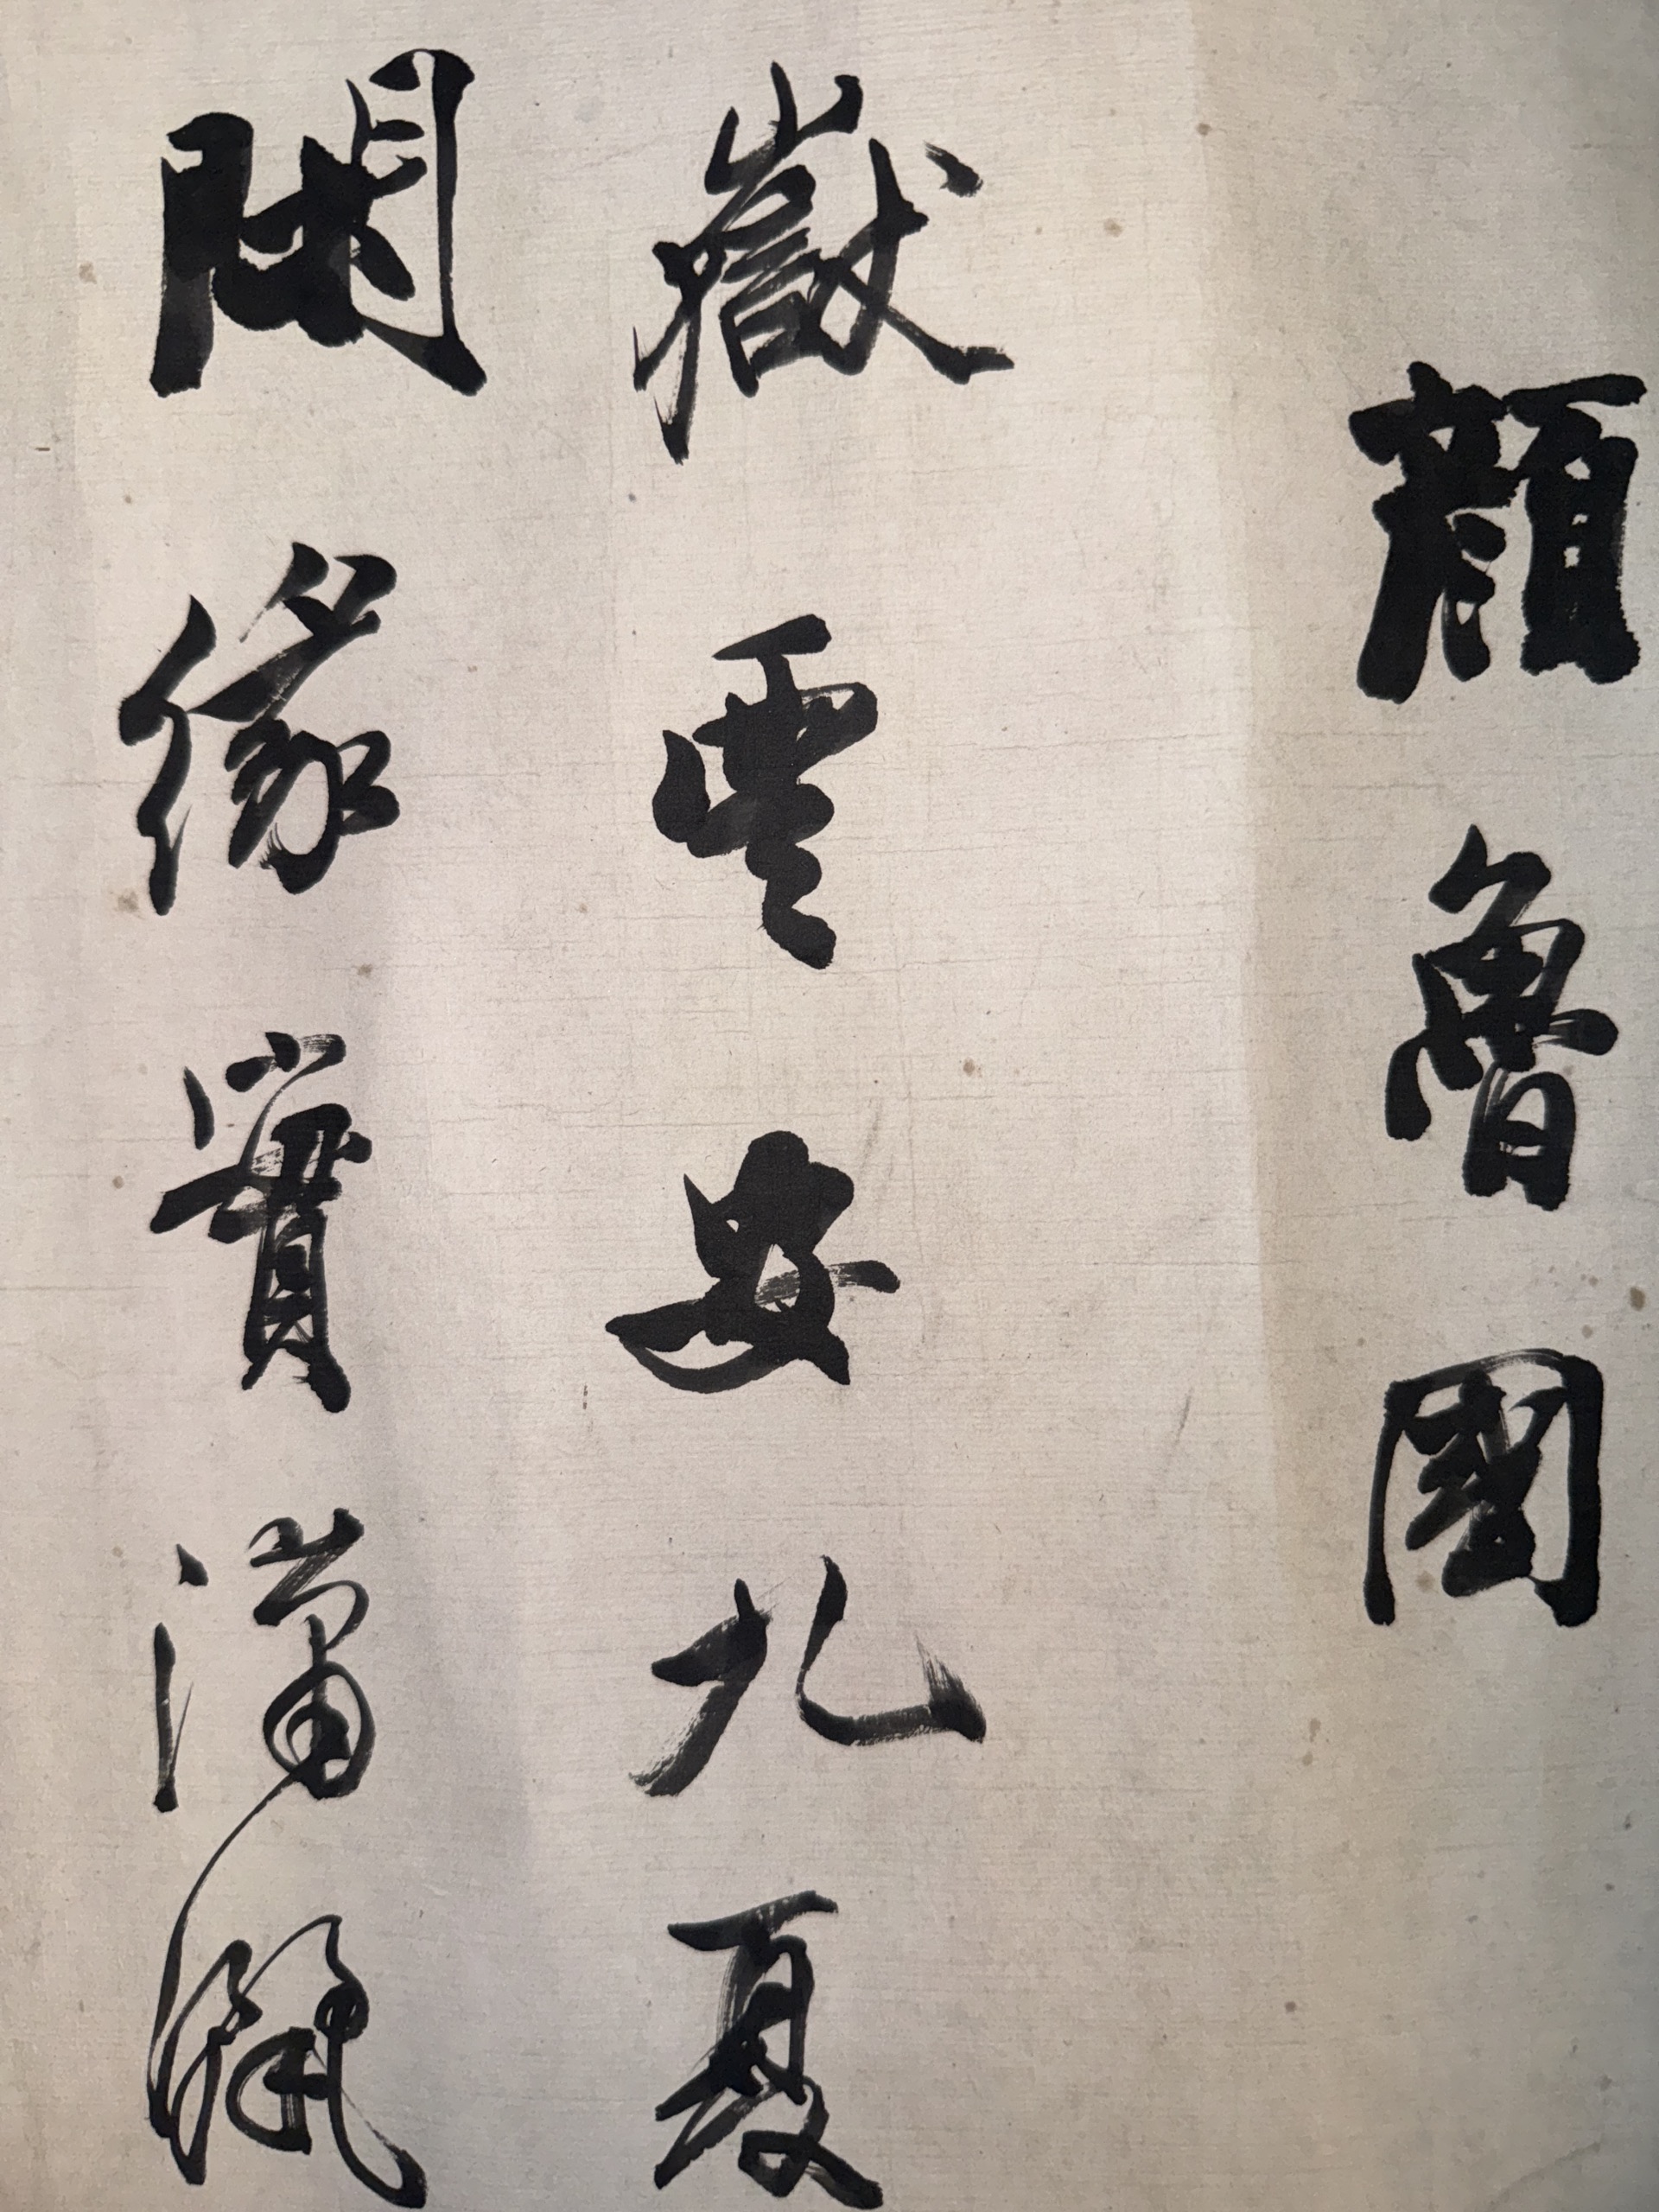 顏魯國
嶽雲安九夏
閑緣實滿